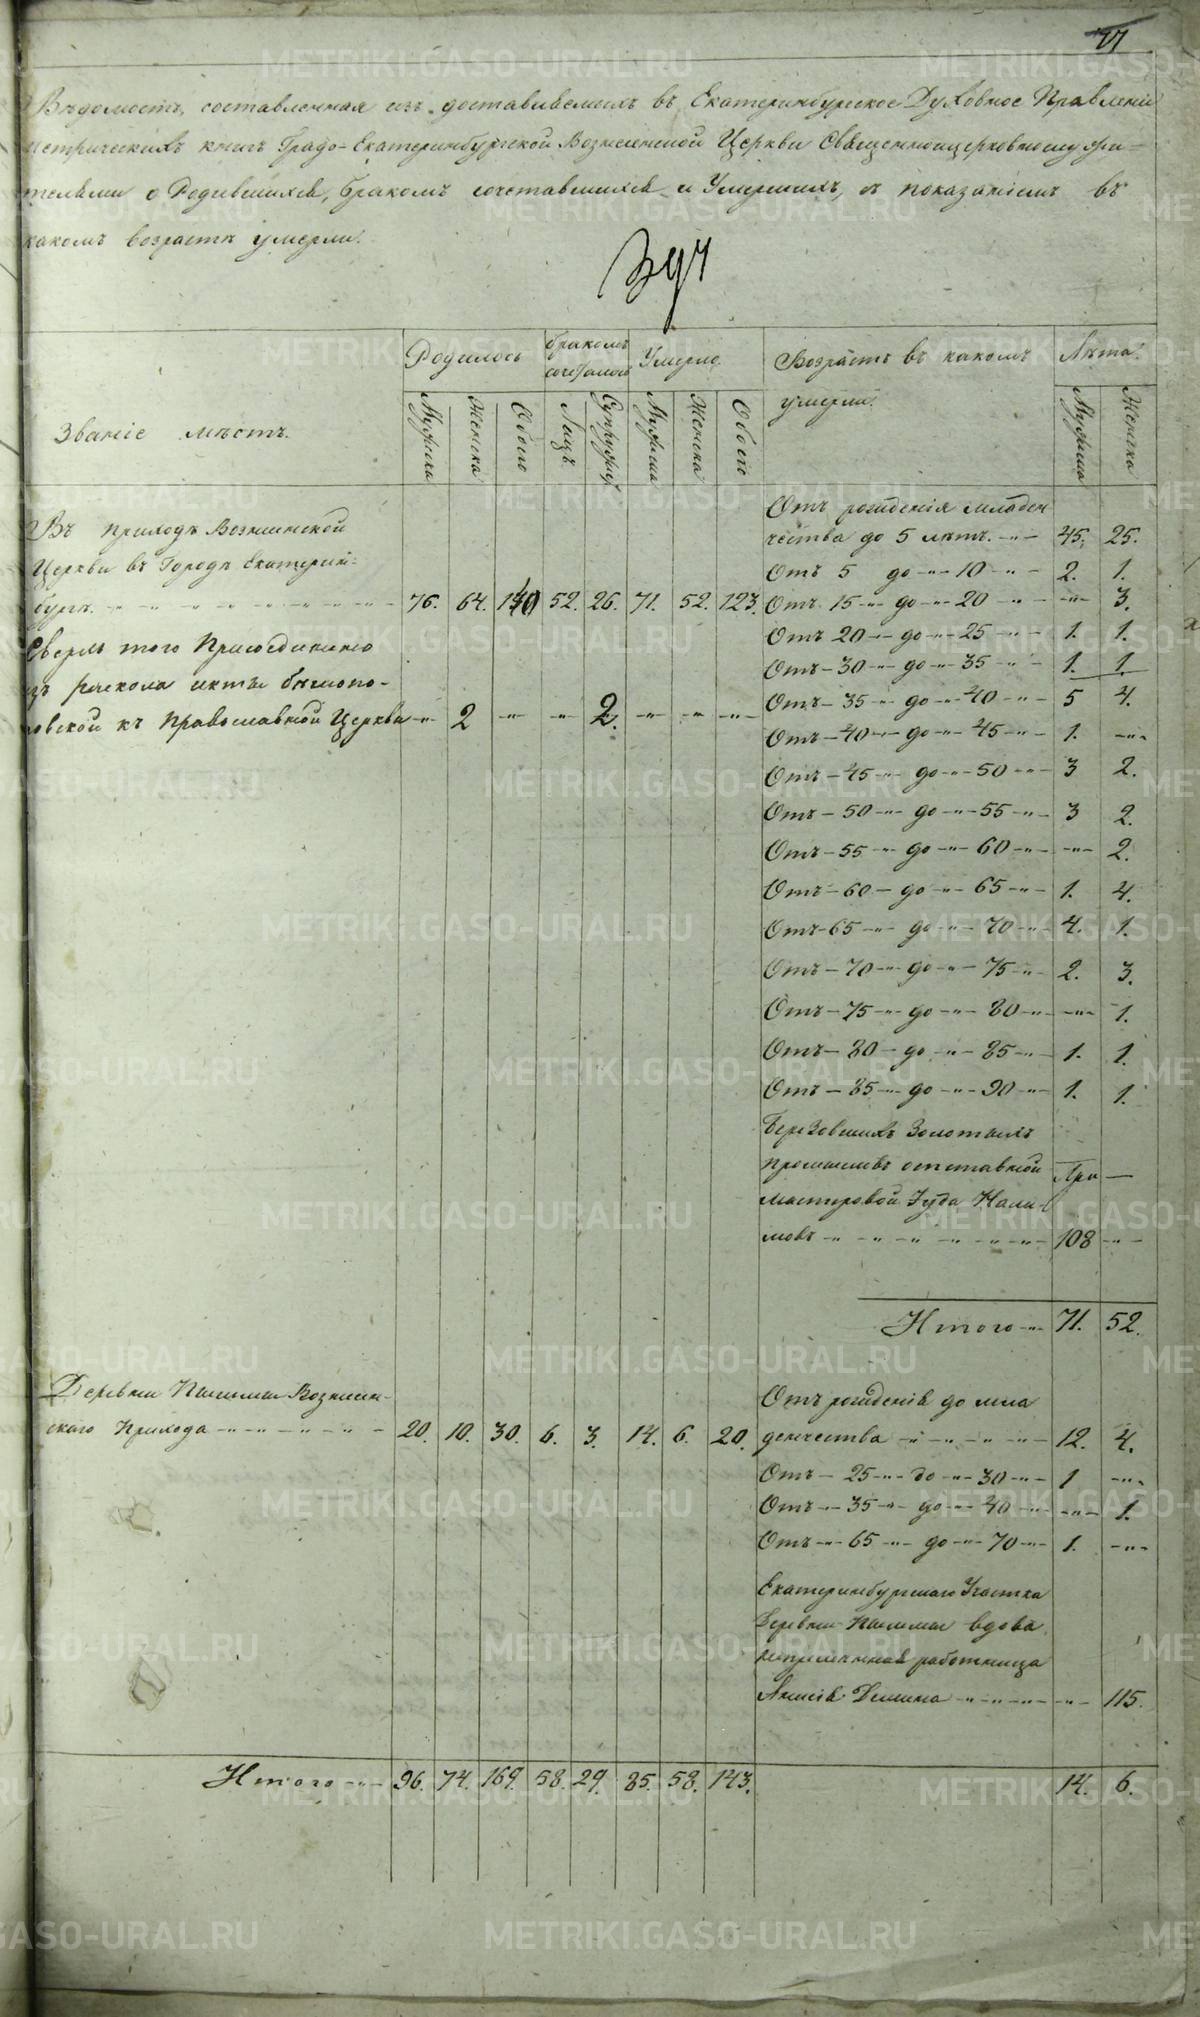 71
Вѣдомость, составленная изъ доставляемыхъ въ Екатеринбургское Духовное Правленіе
метрическихъ книгъ Градо-Екатеринбургской Вознесенской Церкви Священноцерковнослужи-
телями о Родившихся, бракомъ сочетавшихся и Умершихъ, съ показаніемъ въ
какомъ возрастѣ умерли.
Званіе мѣстъ.
Родилось
бракомъ сочеталось
Умерло
Возрастъ въ какомъ умерли.
Лѣта.
Мужеска
Женска
Обоего
Лицъ
Супружес
Мужеска
Женска
Обоего
Мужеска
Женска
Отъ рожденія младен
чества до 5 лѣтъ. 45. 25.
Въ приходѣ Вознесенской
Церкви въ Городѣ Екатерин-
бургѣ 76. 64. 140 52. 26. 71. 52. 123.
Отъ 5 до 10 2. 1.
Отъ 15 до 20 " 3.
Отъ 20 до 25 1. 1.
Сверхъ того Присоединено
изъ раскола секты безпопо-
повской къ Православной Церкви " 2 " " 2. " " "
Отъ 30 до 35 1. 1.
Отъ 35 до 40 5 4.
Отъ 40 до 45 1. "
Отъ 45 до 50 3 2.
Отъ 50 до 55 3 2.
Отъ 55 до 60 " 2.
Отъ 60 до 65 1. 4.
Отъ 65 до 70 4. 1.
Отъ 70 до 75 2. 3.
Отъ 75 до 80 " 1.
Отъ 80 до 85 1. 1.
Отъ 85 до 90 1. 1.
Березовскихъ Золотыхъ
промысловъ отставной
мастеровой Іуда Нали-
мовъ 108 "
Итого 71. 52.
Деревни Пышмы Вознесен-
скаго Прихода 20. 10. 30. 6. 3. 14. 6. 20.
Отъ рожденія до мла
денчества 12. 4.
Отъ 25 до 30 1 "
Отъ 35 до 40 " 1.
Отъ 65 до 70 1. "
Екатеринбургскаго Участка
Деревни Пышмы вдова
непремѣнная работница
Анисія Демина " 115.
Итого 96. 74. 169. 58. 29. 85. 58. 143. 14. 6.
METRIKI.GASO-URAL.RU